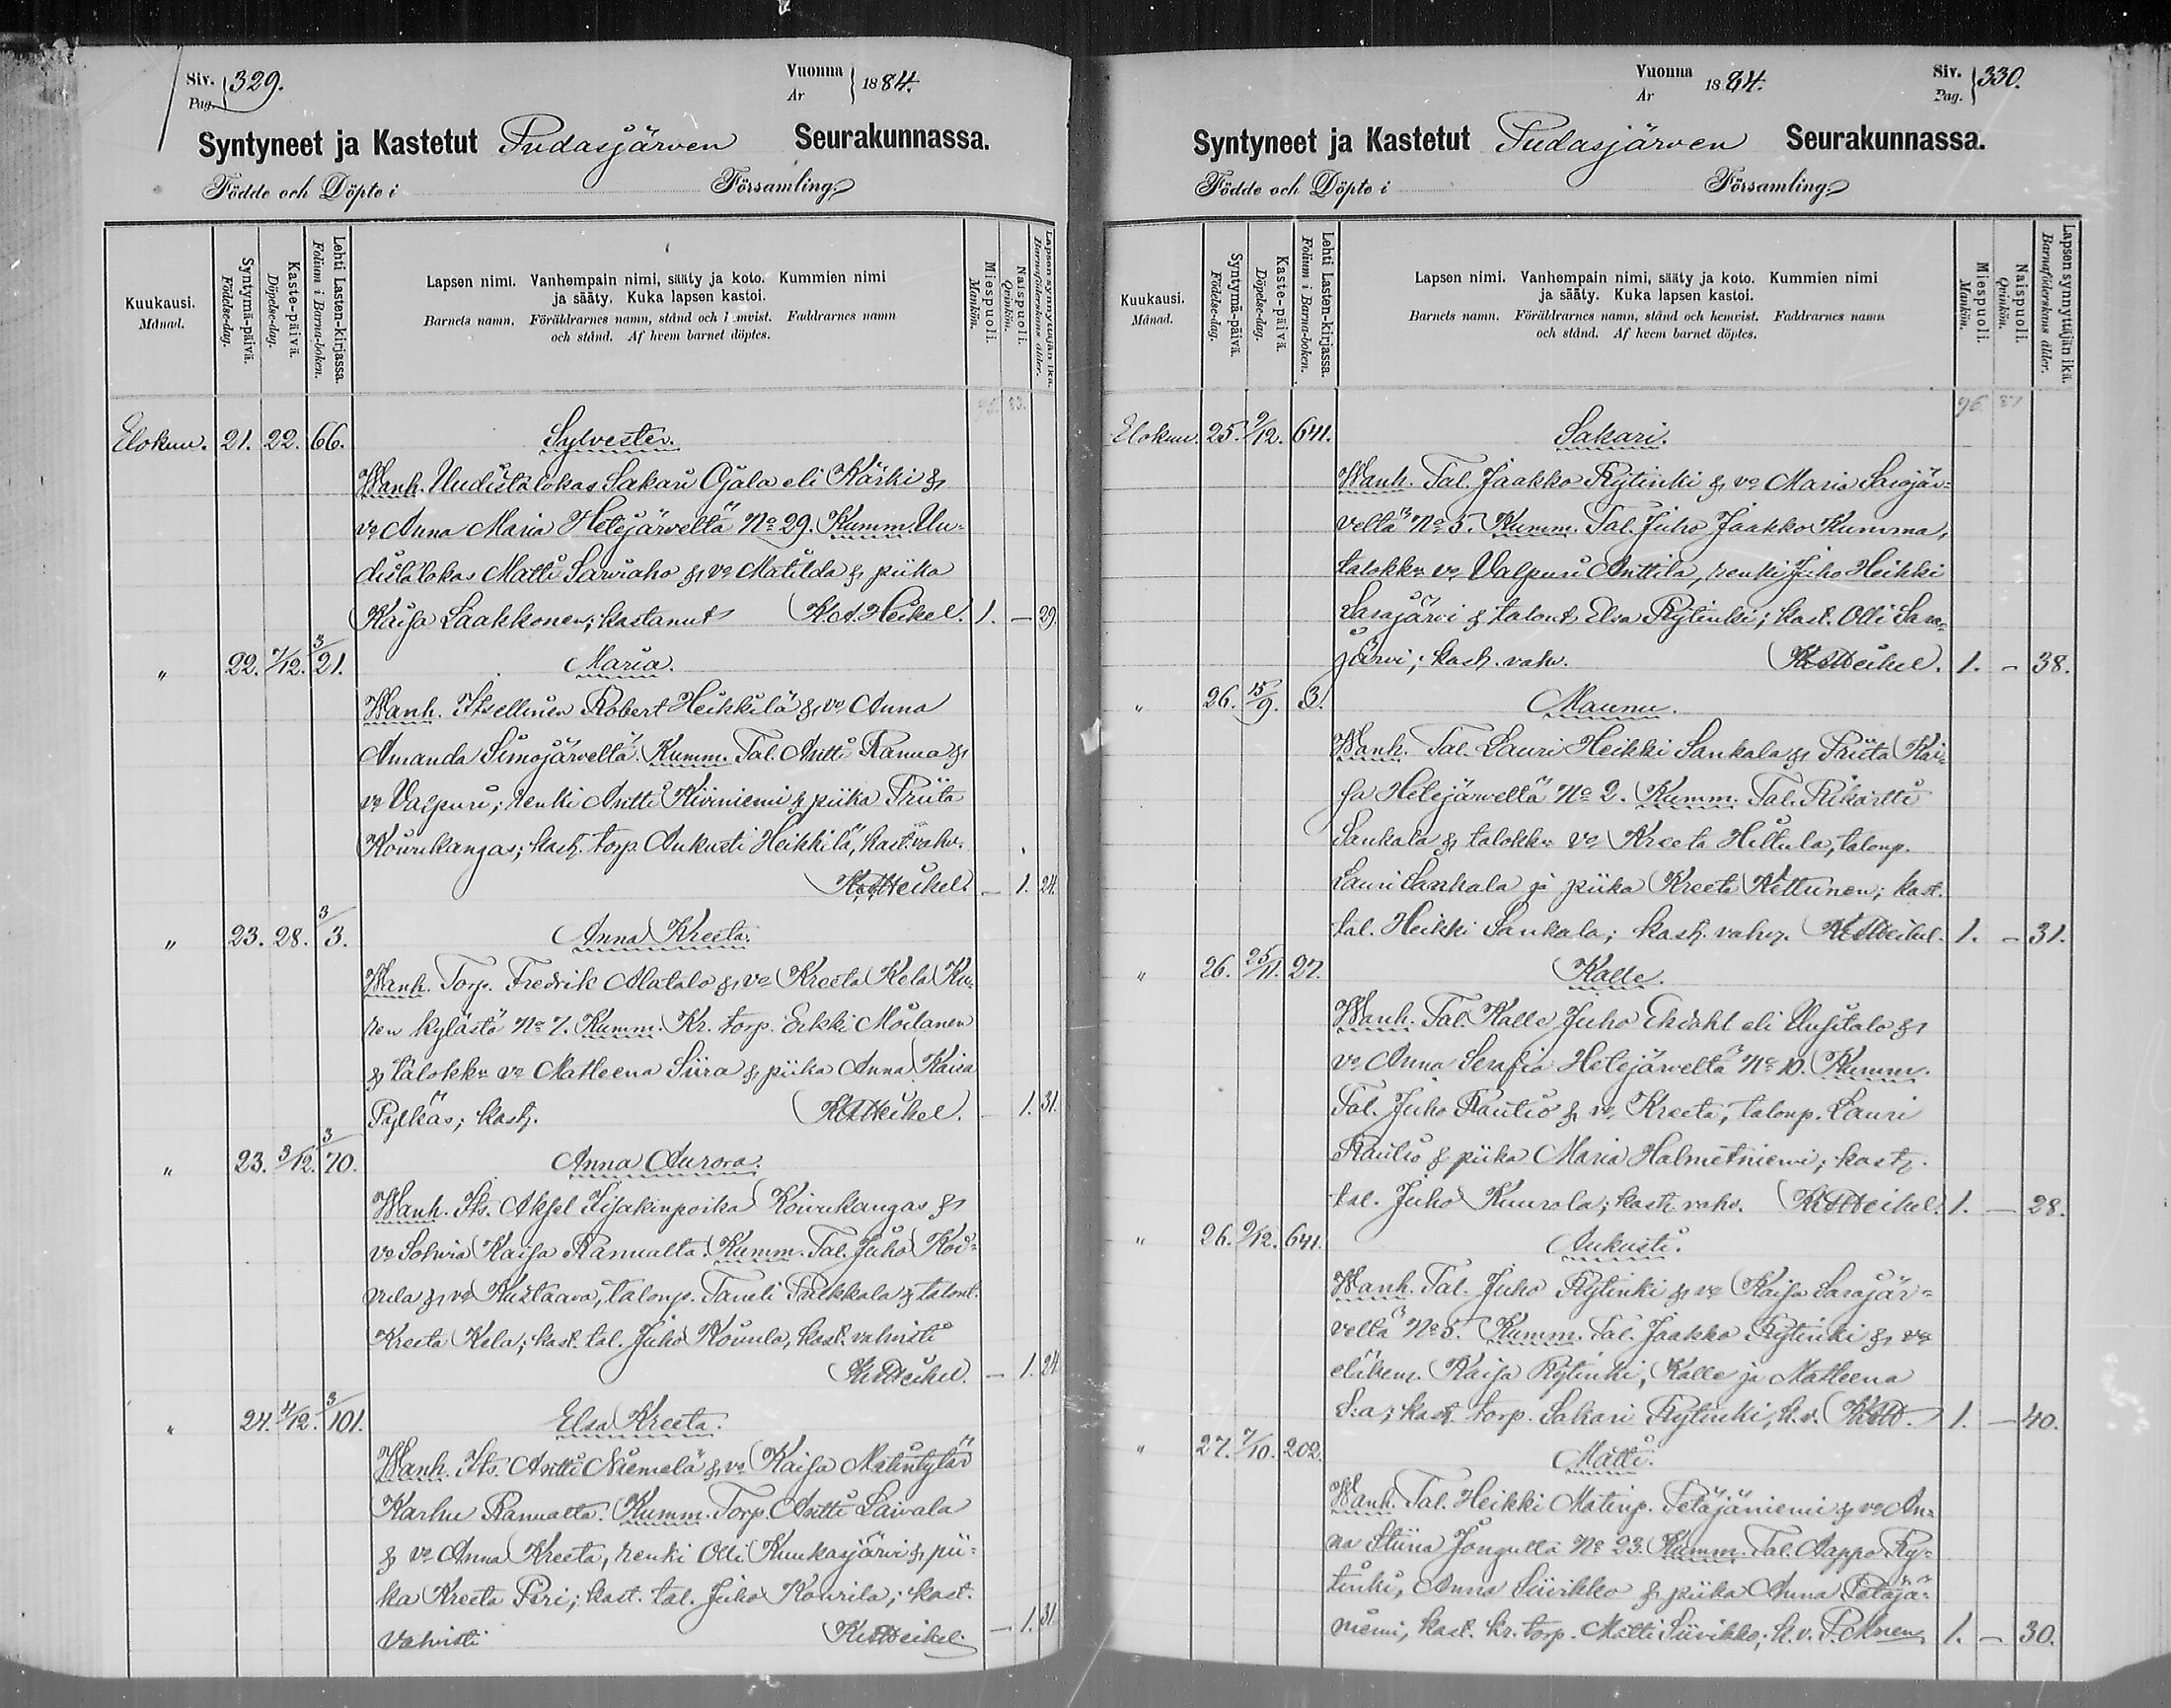 Siv. Pag. 329.
Vuonna År 1884.
Syntyneet ja Kastetut Pudasjärven Seurakunnassa.
Födde och Döpte i Församling.
Kuukausi. Månad.
Syntymä-päivä. Födelse-dag.
Kaste-päivä. Döpelse-dag.
Lehti Lasten-kirjassa. Folium i Barna-boken.
Lapsen nimi. Vanhempain nimi, sääty ja koto. Kummien nimi
ja sääty. Kuka lapsen kastoi.
Barnets namn. Föräldrarnes namn, stånd och hemvist. Faddrarnes namn
och stånd. Af hvem barnet döptes.
Miespuoli. Mankön.
Naispuoli. Qvinkön.
Lapsen synnyttäjän ikä. Barnaföderskans ålder.
95. 83.
Elokuu. 21. 22. 66. Sylvester.
Wanh. Uudistalokas Sakari Ojala eli Kärki &
vo Anna Maria Hetejärveltä No 29. Kumm. Uu-
distalokas Matti Sarviaho & vo Matilda & piika
Kaisa Laakkonen; kastanut K. A. Heikel. 1. — 29.
" 22. 7/12. 3/21. Maria.
Wanh. Itsellinen Robert Heikkilä & vo Anna
Amanda Simojärveltä. Kumm. Tal. Antti Ranua &
vo Valpuri; renki Antti Kiviniemi & piika Priita
Kourikangas; kast. torp. Aukusti Heikkilä, kast. vahv.
K. A. Heikel. — 1. 24.
" 23. 28. 3/3. Anna Kreeta.
Wanh. Torp. Fredrik Alatalo & vo Kreeta Kela Ku-
ren kylästä No 7. Kumm. Kr. torp. Erkki Moilanen
& talokk:n vo Matleena Siira & piika Anna Kaisa
Pylkäs; kast. K. A. Heikel. 1. 31.
" 23. 3/12. 3/70. Anna Aurora.
Wanh. Its. Aksel Iisakinpoika Koivukangas &
vo Solvia Kaisa Ranualta. Kumm. Tal. Juho Kou-
rila & vo Kustaava, talonp. Taneli Pirkkala & talont.
Kreeta Kela; kast. tal. Juho Kourila, kast. vahvisti
K. A. Heikel. — 1. 24.
" 24. 4/12. 3/101. Elsa Kreeta.
Wanh. Its. Antti Niemelä & vo Kaisa Matintytär
Karhu Ranualta. Kumm. Torp. Antti Laivala
& vo Anna Kreeta, renki Olli Kuukasjärvi & pii-
ka Kreeta Peri; kast. tal. Juho Kourila; kast.
vahvisti K. A. Heikel. — 1. 31.
Vuonna År 1884.
Siv. Pag. 330.
Syntyneet ja Kastetut Pudasjärven Seurakunnassa.
Födde och Döpte i Församling.
Kuukausi. Månad.
Syntymä-päivä. Födelse-dag.
Kaste-päivä. Döpelse-dag.
Lehti Lasten-kirjassa. Folium i Barna-boken.
Lapsen nimi. Vanhempain nimi, sääty ja koto. Kummien nimi
ja sääty. Kuka lapsen kastoi.
Barnets namn. Föräldrarnes namn, stånd och hemvist. Faddrarnes namn
och stånd. Af hvem barnet döptes.
Miespuoli. Mankön.
Naispuoli. Qvinkön.
Lapsen synnyttäjän ikä. Barnaföderskans ålder.
96. 87
Elokuu. 25. 9/12. 641. Sakari.
Wanh. Tal. Jaakko Rytinki & vo Maria Sarajär-
veltä No 5. Kumm. Tal. Juho Jaakko Kumma,
talokk:n vo Valpuri Anttila, renki Juho Heikki
Sarajärvi & talont. Elsa Rytinki; kast. Olli Sara-
järvi; kast. vahv. K. A. Heikel. 1. — 38.
" 26. 15/9. 3. Maunu.
Wanh. Tal. Lauri Heikki Sankala & Priita Kai-
sa Hetejärveltä No 2. Kumm. Tal. Rikartti
Sankala & talokk:n vo Kreeta Hiltula, talonp.
Lauri Sankala ja piika Kreeta Kettunen; kast.
tal. Heikki Sankala; kast. vahv. K. A. Heikel. 1. — 31.
" 26. 25/11. 27. Kalle.
Wanh. Tal. Kalle Juho Ekdahl eli Uusitalo &
vo Anna Serafia Hetejärveltä No 10. Kumm.
Tal. Juho Rautio & vo Kreeta, talonp. Lauri
Rautio & piika Maria Halmetniemi; kast.
tal. Juho Kuurola; kast. vahv. K. A. Heikel. 1. — 28.
" 26. 9/12. 641. Aukusti.
Wanh. Tal. Juho Rytinki & vo Kaisa Sarajär-
veltä No 5. Kumm. Tal. Jaakko Rytinki & vo
Kaisa Rytinki, Kalle ja Matleena
S:a; kast. torp. Sakari Rytinki, k. v. K. A. H. 1. — 40.
" 27. 7/10. 202. Matti.
Wanh. Tal. Heikki Matinp. Petäjäniemi & vo An-
na Stiina Jongulta No 23. Kumm. Tal. Aappo Ry-
tinki, Anna Siivikko & piika Anna Petäjä-
niemi, kast. kr. torp. Matti Siivikko; k. v. 1. — 30.